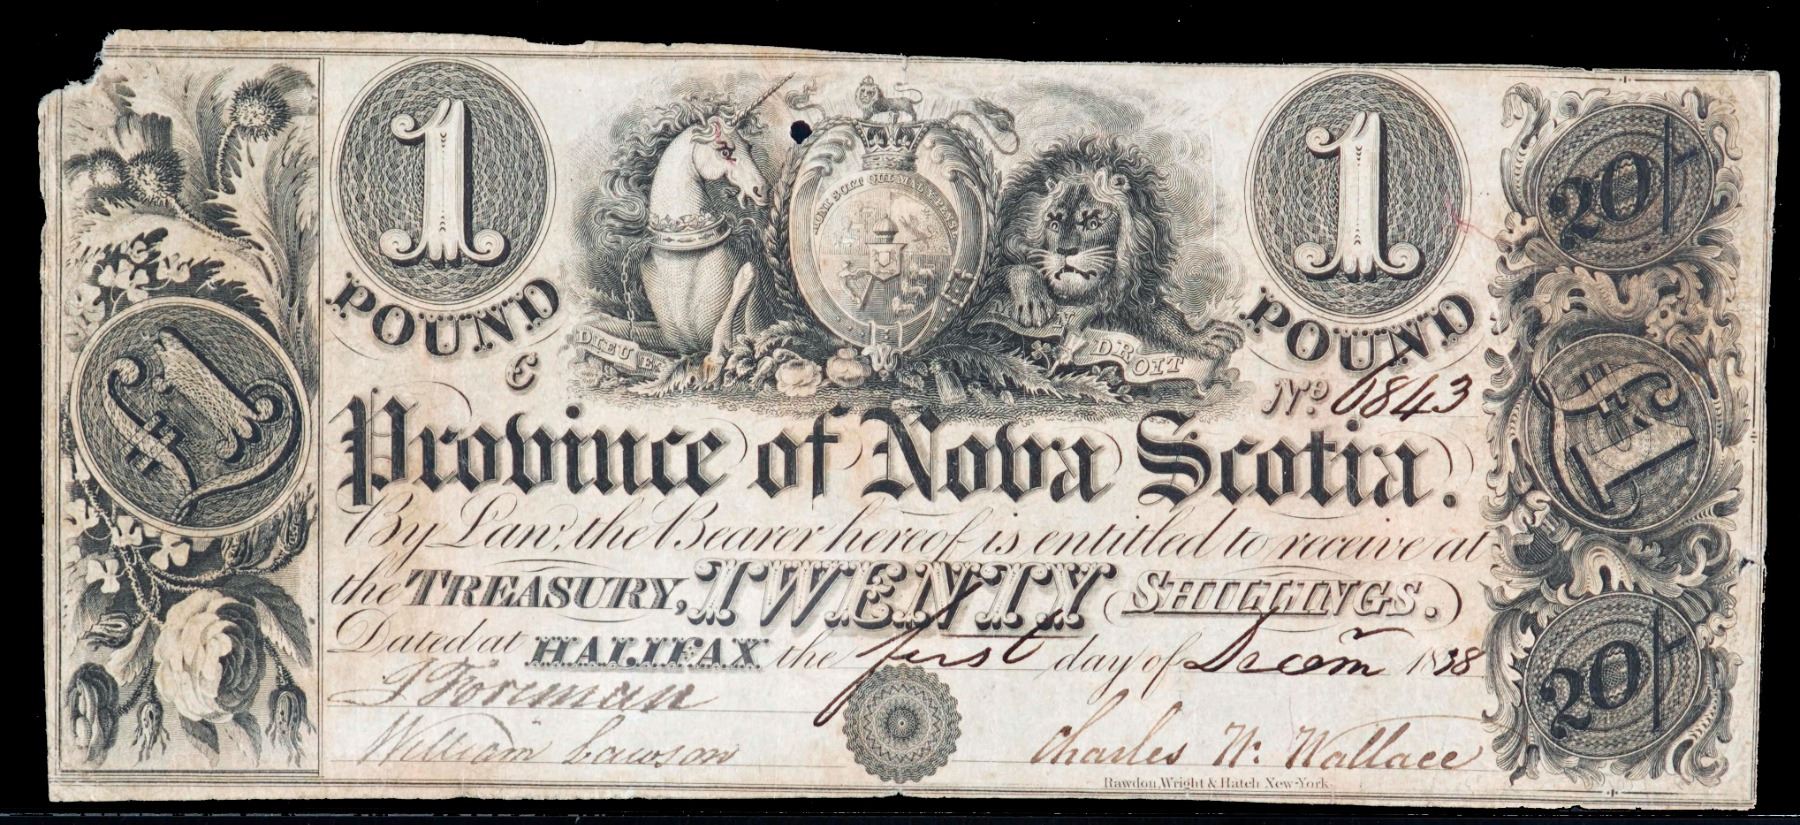 1 1
POUND POUND
HONI SOIT QUI MAL Y PENSE
DIEU ET MON DROIT
C
No. 6843
Province of Nova Scotia.
By Law, the Bearer hereof is entitled to receive at
the TREASURY, TWENTY SHILLINGS.
Dated at HALIFAX the first day of Decemr 1838
J Foreman
William Lawson
Charles W. Wallace
Rawdon, Wright & Hatch New-York.
£1
20/
£1
20/